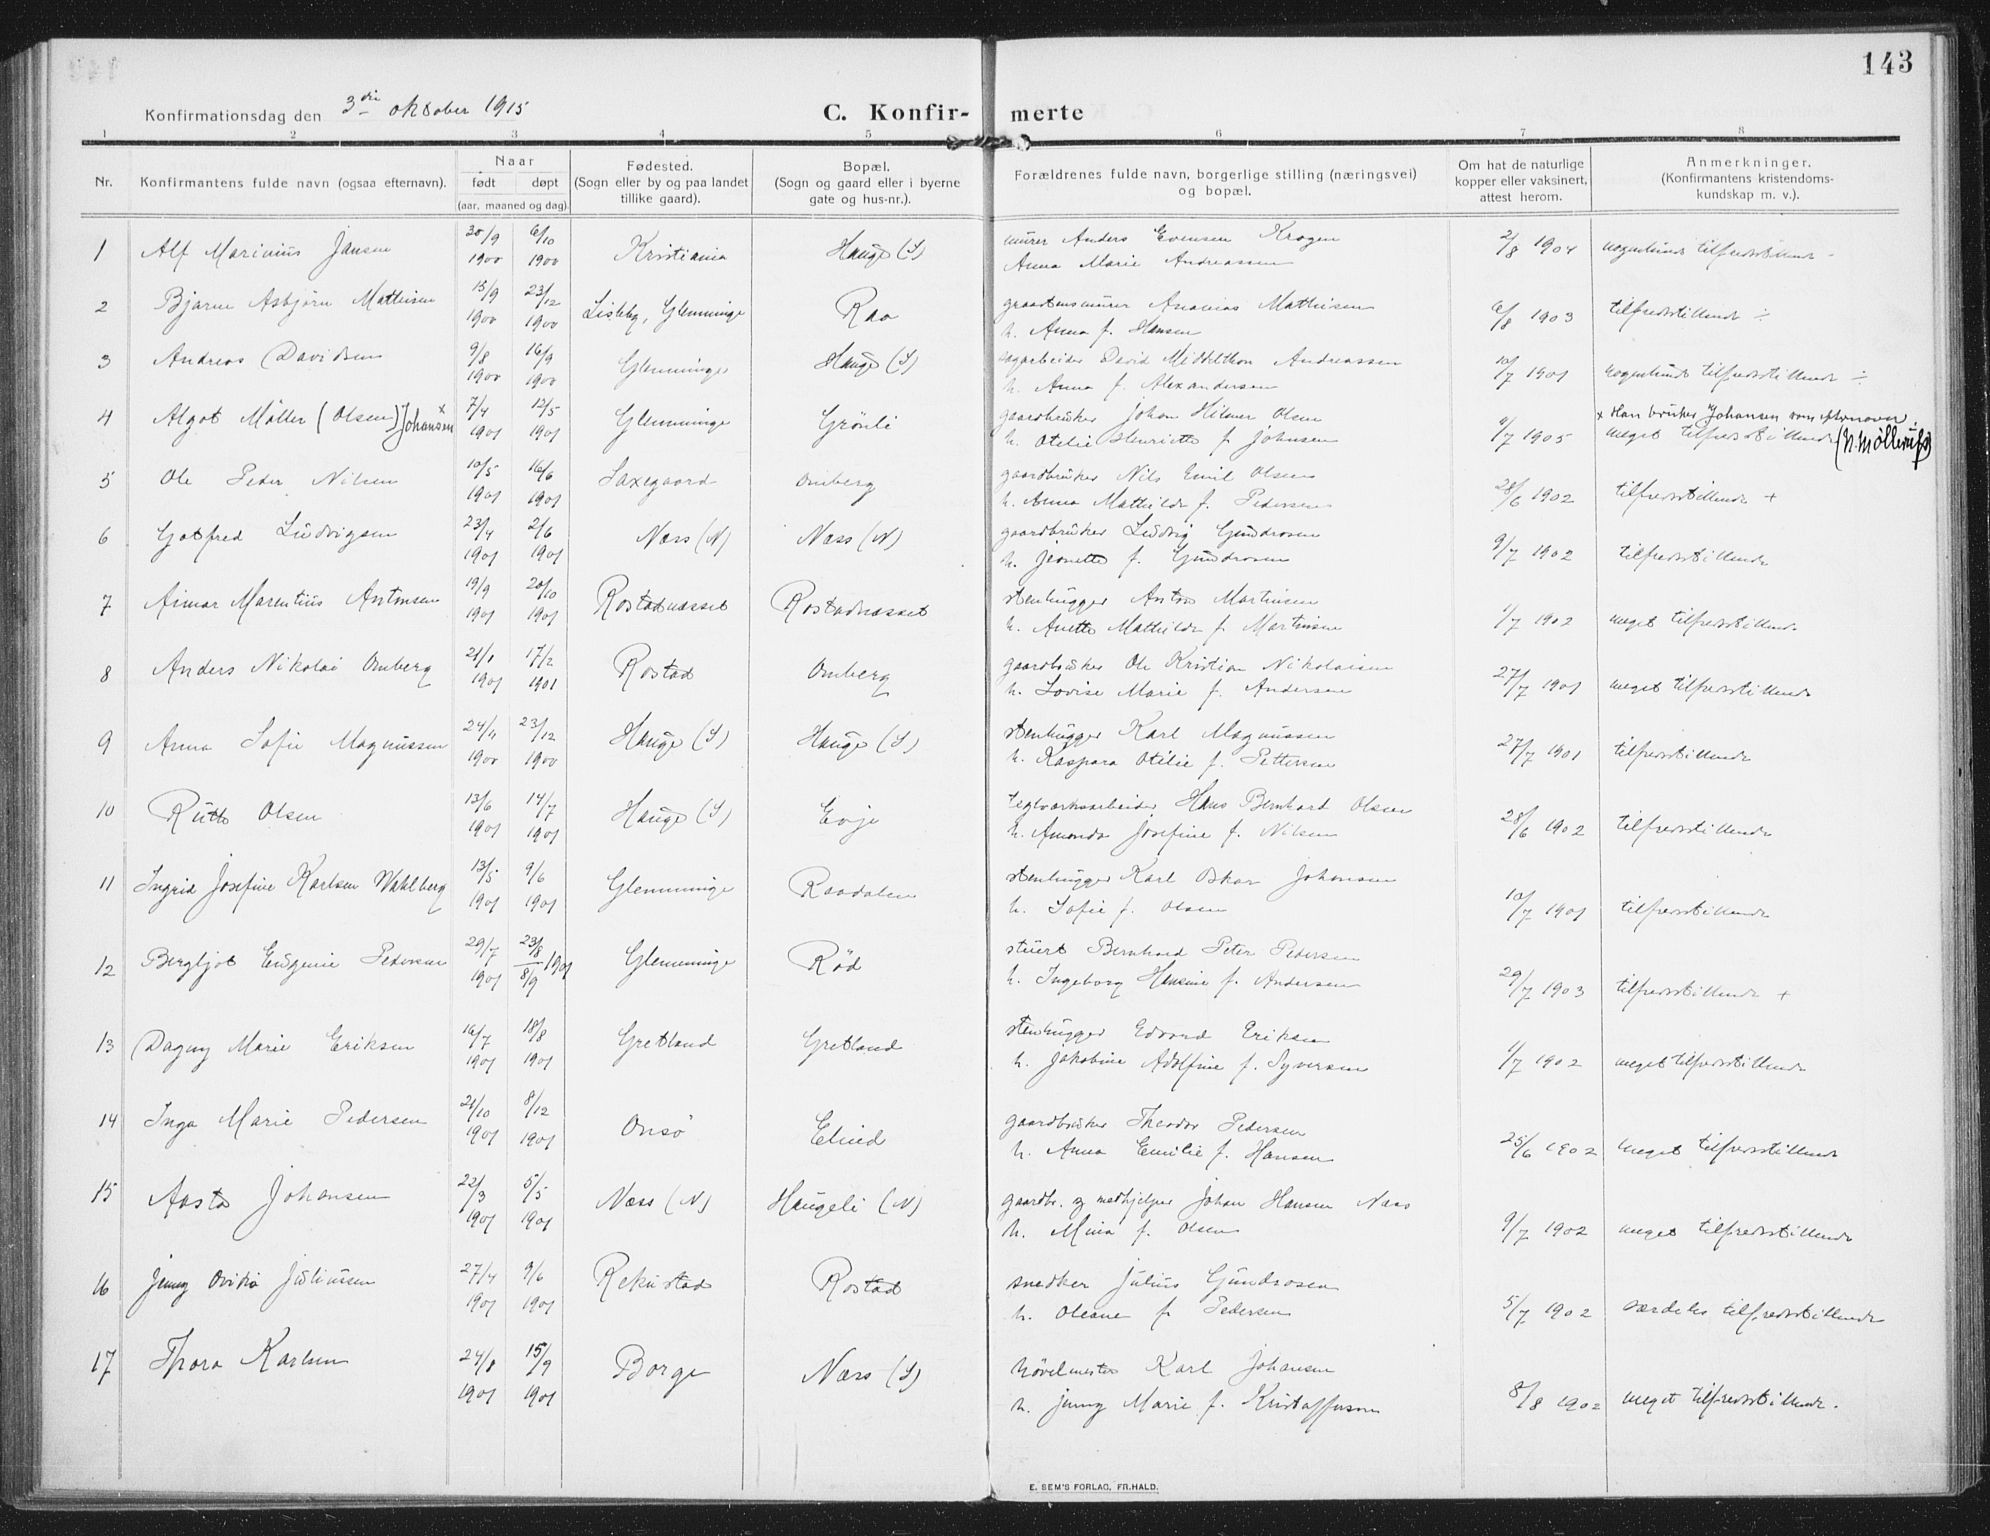 143
Konfirmationsdag den 3die oktober 1915
C. Konfirmerte
1 2 3 4 5 6 7 8
Nr.
Konfirmantens fulde navn (ogsaa efternavn).
Naar
født døpt
(aar, maaned og dag).
Fødested.
(Sogn eller by og paa landet
tillike gaard).
Bopæl.
(Sogn og gaard eller i byerne
gate og hus-nr.).
Forældrenes fulde navn, borgerlige stilling (næringsvei)
og bopæl.
Om hat de naturlige
kopper eller vaksinert,
attest herom.
Anmerkninger.
(Konfirmantens kristendoms-
kundskap m. v.).
1 Alf Marinius Jansen 30/9 1900 6/10 1900 Kristiania Hauge (S) murer Anders Evensen Krogen 2/8 1904 nogenlunde tilfredsstillende
Anna Marie Andreassen
2 Bjarne Asbjørn Mathisen 15/9 1900 23/12 1900 Lisleby, Glemminge Raa graastensmurer Ananias Mathisen 6/8 1903 tilfredsstillende ÷
h. Anna f. Hansen
3 Andreas Davidsen 9/8 1900 16/9 1900 Glemminge Hauge (S) sagarbeider David Middelthon Andreassen 10/7 1901 nogenlunde tilfredsstillende ÷
h. Anna f. Alexandersen
4 Algot Möller (Olsen) Johansen x 7/4 1901 12/5 1901 Glemminge Grönli gaardbruker Johan Hilmer Olsen 4/7 1905 x Han bruker Johansen som efternavn
h. Otilie Henriette f. Johnsen meget tilfredsstillende (N. Möllerufs)
5 Ole Peder Nilsen 10/5 1901 16/6 1901 Saxegaard Omberg gaardbruker Nils Emil Olsen 28/6 1902 tilfredsstillende +
h. Anna Mathilde f. Pedersen
6 Gotfred Ludvigsen 23/4 1901 2/6 1901 Næss (N) Næss (N) gaardbruker Ludvig Gundrosen 9/7 1902 tilfredsstillende
h. Jeanette f. Gundrosen
7 Aimar Marentius Antonsen 19/9 1901 20/10 1901 Rostadnæsset Rostadnæsset stenhugger Anton Martinsen 1/7 1902 meget tilfredsstillende
h. Anette Mathilde f. Martinsen
8 Anders Nikolai Omberg 21/1 1901 17/2 1901 Rostad Omberg gaardbruker Ole Kristian Nikolaisen 27/7 1901 meget tilfredsstillende
h. Lovise Marie f. Andersen
9 Anna Sofie Magnussen 24/11 1900 23/12 1900 Hauge (S) Hauge (S) stenhugger Karl Magnussen 27/7 1901 tilfredsstillende
h. Kaspara Otilie f. Pettersen
10 Ruth Olsen 13/6 1901 14/7 1901 Hauge (S) Evje teglverksarbeider Hans Bernhard Olsen 28/6 1902 tilfredsstillende
h. Amanda Josefine f. Nilsen
11 Ingrid Josefine Karlsen Wahlberg 13/5 1901 9/6 1901 Glemminge Raadalen stenhugger Karl Oskar Johansen 10/7 1901 tilfredsstillende
h. Sofie f. Olsen
12 Bergljot Eugenie Pedersen 29/7 1901 23/8 8/9 1901 Glemminge Rød stuert Bernhard Peter Pedersen 29/7 1903 tilfredsstillende +
h. Ingeborg Hansine f. Andersen
13 Dagny Marie Eriksen 16/7 1901 18/8 1901 Gretland Gretland stenhugger Edvard Eriksen 1/7 1902 meget tilfredsstillende
h. Jakobine Adolfine f. Syversen
14 Inga Marie Pedersen 21/10 1901 8/12 1901 Onsö Elind gaardbruker Theodor Pedersen 25/6 1902 meget tilfredsstillende
h. Anna Emilie f. Hansen
15 Aasta Johansen 22/3 1901 5/5 1901 Næss (N) Haugeli (N) gaardbr. og medhjelper Johan Hansen Næss 9/7 1902 meget tilfredsstillende
h. Mina f. Olsen
16 Jenny Ovidia Juliussen 27/4 1901 9/6 1901 Rekustad Rostad snedker Julius Gundrosen 5/7 1902 særdeles tilfredsstillende
h. Oleane f. Pedersen
17 Thora Karlsen 24/8 1901 15/9 1901 Borge Næss (S) høvelmester Karl Johansen 8/8 1902 meget tilfredsstillende.
h. Jenny Marie f. Kristoffersen
E. SEM'S FORLAG, FR.HALD.